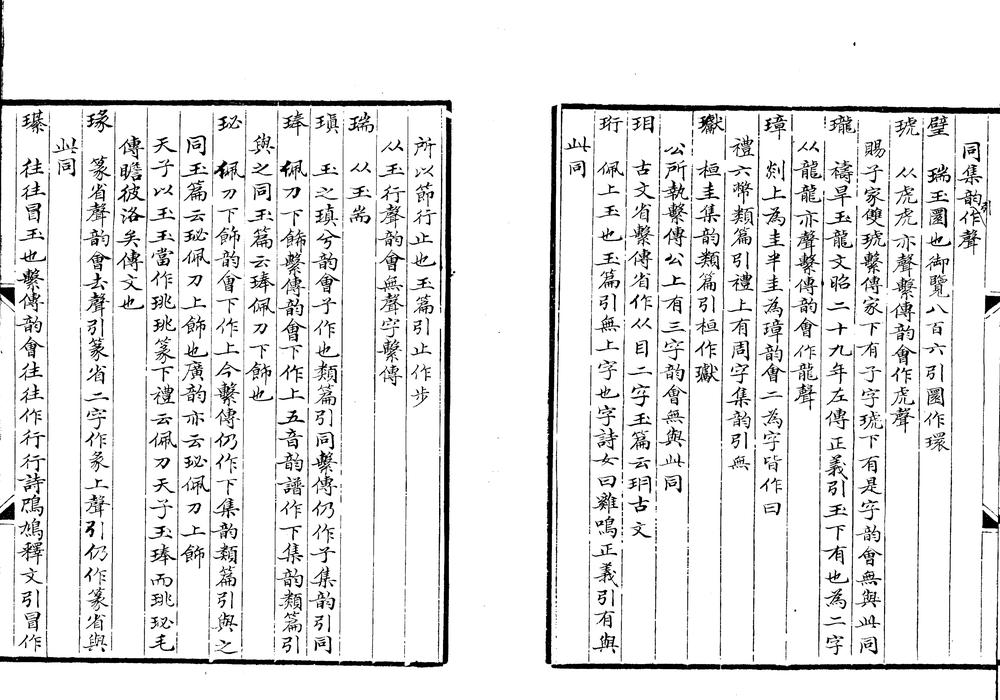 同集韵引作聲
璧　瑞玉圜也御覽八百六引圜作環
琥　从虎虎亦聲繫傳韵會作虎聲
賜子家雙琥繫傳家下有子字琥下有是字韵會無與此同
瓏　禱旱玉龍文昭二十九年左傳正義引玉下有也為二字
从龍龍亦聲繫傳韵會作龍聲
璋　剡上為圭半圭為璋韵會二為字皆作曰
禮六幣類篇引禮上有周字集韵引無
瓛　桓圭集韵類篇引桓作瓛
公所執繫傳公上有三字韵會無與此同
珇　古文省繫傳省作从目二字玉篇云玥古文
珩　佩上玉也玉篇引無上字也字詩女曰雞鳴正義引有與
此同
所以節行止也玉篇引止作步
从玉行聲韵會無聲字繫傳
瑞　从玉耑
瑱　玉之瑱兮韵會子作也類篇引同繫傳仍作子集韵引同
琫　佩刀下飾繫傳韵會下作上五音韵譜作下集韵類篇引
與之同玉篇云琫佩刀下飾也
珌　佩刀下飾韵會下作上今繫傳仍作下集韵類篇引與之
同玉篇云珌佩刀上飾也廣韵亦云珌佩刀上飾
天子以玉玉當作珧珧篆下禮云佩刀天子玉琫而珧珌毛
傳瞻彼洛矣傳文也
瑑　篆省聲韵會去聲引篆省二字作彖上聲引仍作篆省與
此同
璪　往往冒玉也繫傳韵會往往作行行詩鳲鳩釋文引冒作